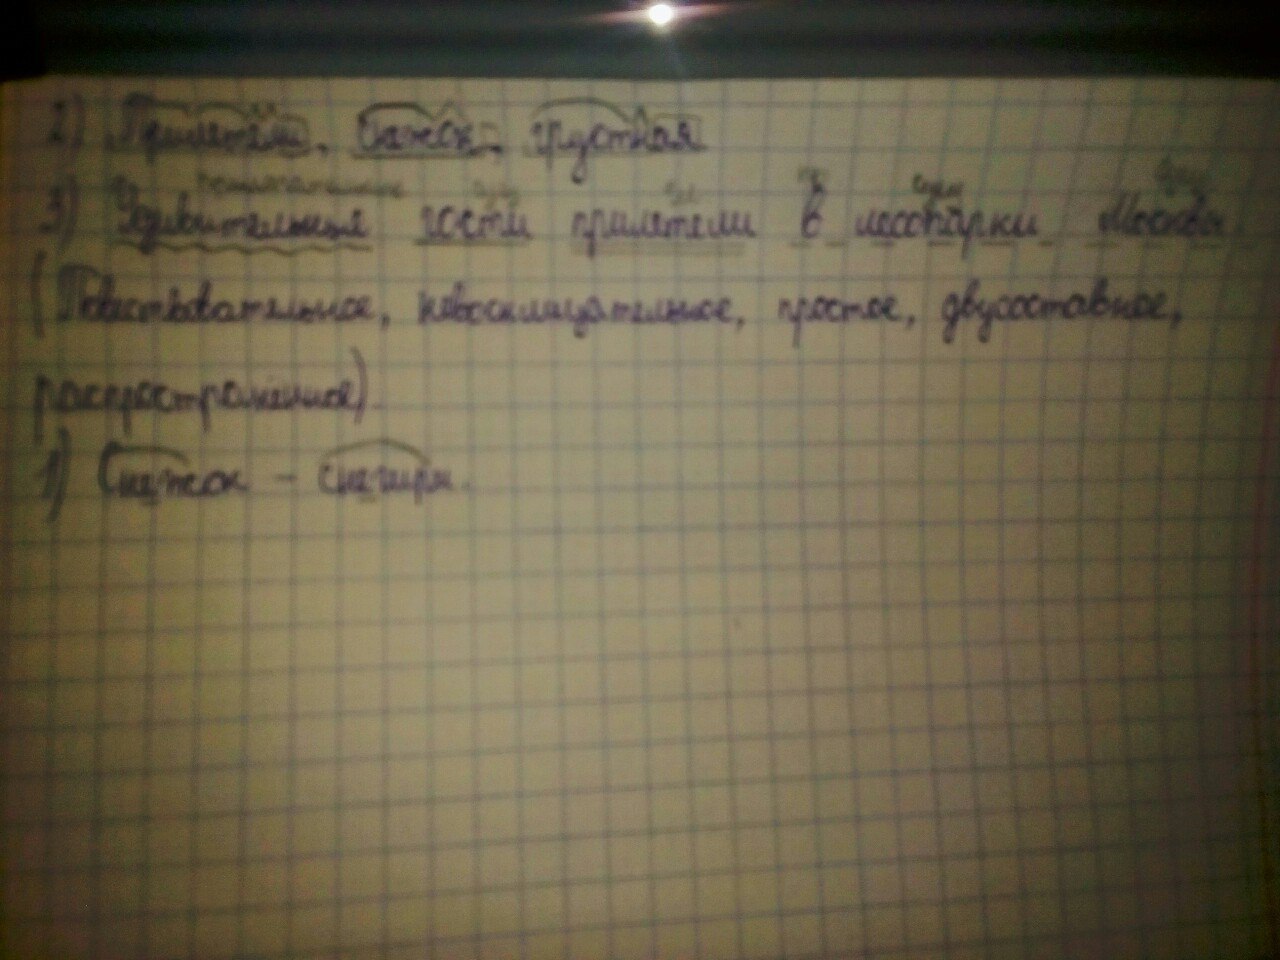 2) Прилетели, снежок, грустная
3) Удивительные гости прилетели в лесопарки Москвы
(Повествовательное, невосклицательное, простое, двусоставное,
распространённое).
1) Снежок - снегири.